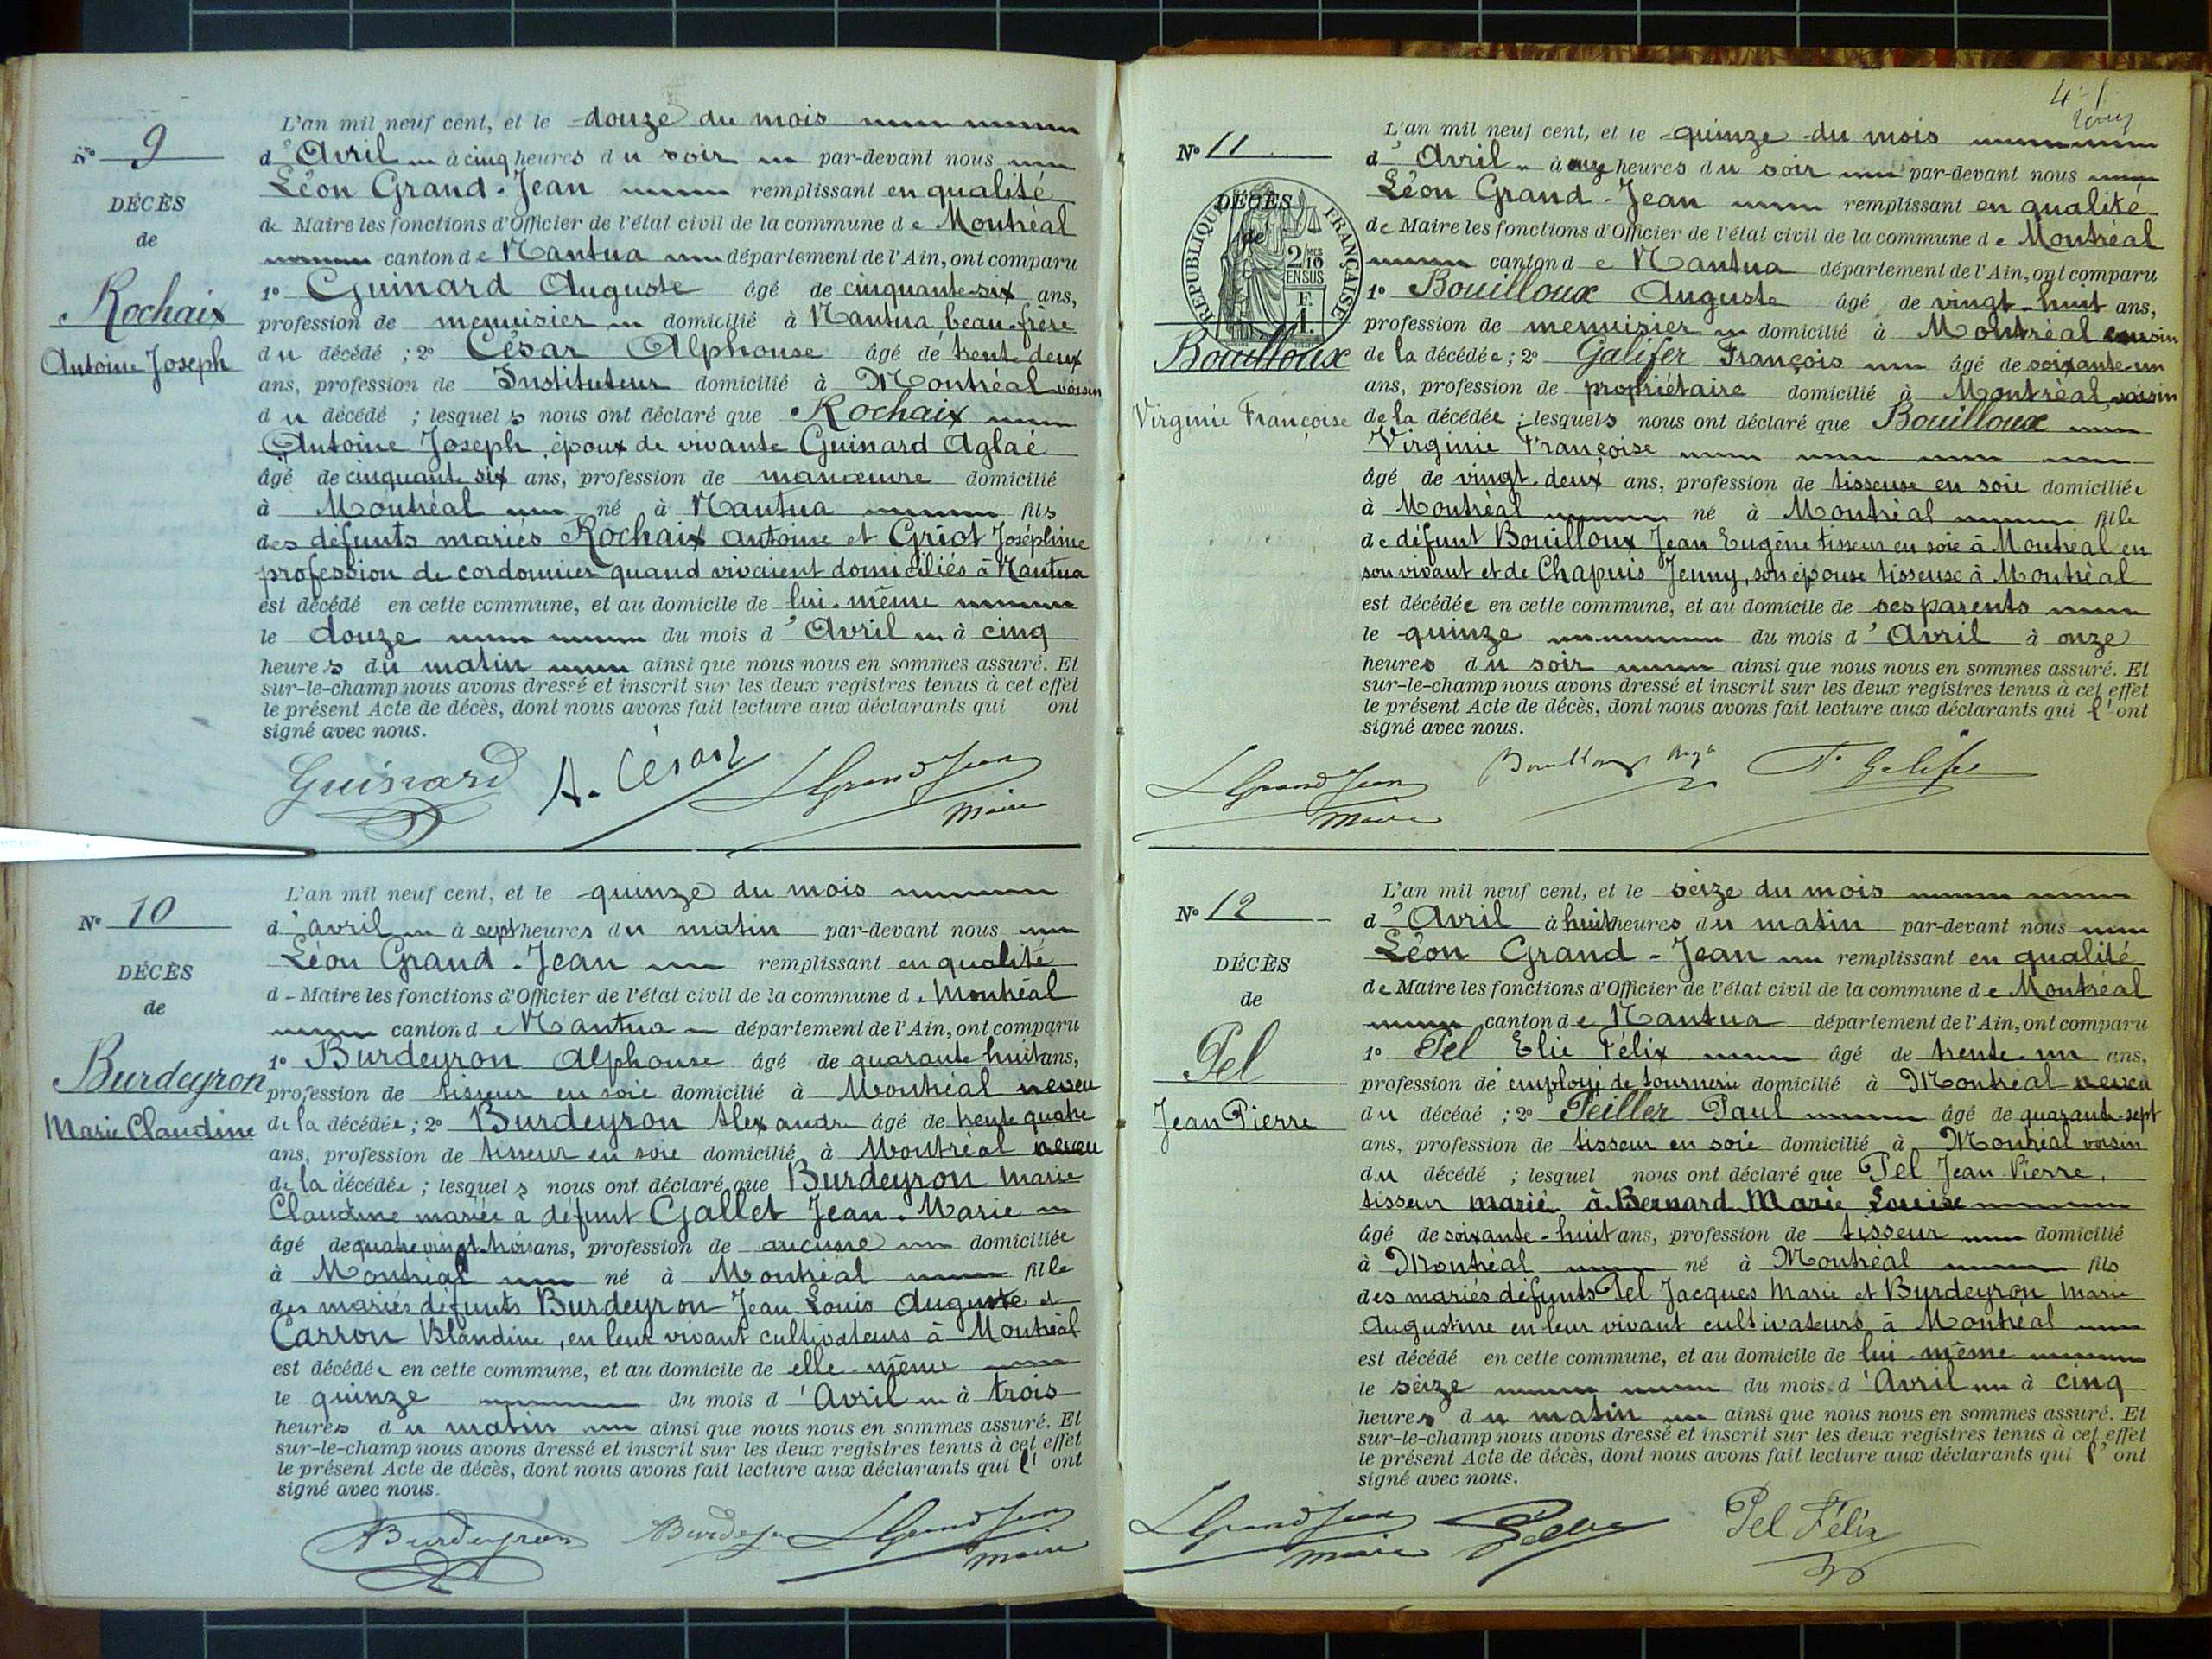 L'an mil neuf cent, et le douze du mois
N° 9
d'Avril à cinq heures du soir par-devant nous
Léon Grand-Jean remplissant en qualité
DÉCÈS
de Maire les fonctions d'Officier de l'état civil de la commune de Montréal
de
canton de Nantua département de l'Ain, ont comparu
1° Guinard Auguste âgé de cinquante-six ans,
Rochaix
profession de menuisier domicilié à Nantua, beau-frère
Antoine Joseph
du décédé ; 2° César Alphonse âgé de trente-deux
ans, profession de Instituteur domicilié à Montréal voisin
du décédé ; lesquels nous ont déclaré que Rochaix
Antoine Joseph, époux de vivante Guinard Aglaé
âgé de cinquante six ans, profession de manœuvre domicilié
à Montréal né à Nantua fils
des défunts mariés Rochaix Antoine et Griot Joséphine
profession de cordonnier quand vivaient domiciliés à Nantua
est décédé en cette commune, et au domicile de lui-même
le douze du mois d'Avril à cinq
heures du matin ainsi que nous nous en sommes assuré. Et
sur-le-champ nous avons dressé et inscrit sur les deux registres tenus à cet effet
le présent Acte de décès, dont nous avons fait lecture aux déclarants qui ont
signé avec nous.
Guinard A. César LGrandJean
Maire
L'an mil neuf cent, et le quinze du mois
N° 10
d'avril à sept heures du matin par-devant nous
Léon Grand-Jean remplissant en qualité
DÉCÈS
d- Maire les fonctions d'Officier de l'état civil de la commune de Montréal
de
canton de Nantua département de l'Ain, ont comparu
1° Burdeyron Alphonse âgé de quarante huit ans,
Burdeyron
profession de tisseur en soie domicilié à Montréal neveu
Marie Claudine
de la décédée ; 2° Burdeyron Alexandre âgé de trente quatre
ans, profession de tisseur en soie domicilié à Montréal neveu
de la décédée ; lesquels nous ont déclaré que Burdeyron Marie
Claudine mariée à défunt Gallet Jean-Marie
âgé de quatre vingt-trois ans, profession de aucune domiciliée
à Montréal né à Montréal fille
des mariés défunts Burdeyron Jean Louis Auguste et
Carron Blandine, en leur vivant cultivateurs à Montréal
est décédée en cette commune, et au domicile de elle-même
le quinze du mois d'Avril à trois
heures du matin ainsi que nous nous en sommes assuré. Et
sur-le-champ nous avons dressé et inscrit sur les deux registres tenus à cet effet
le présent Acte de décès, dont nous avons fait lecture aux déclarants qui l'ont
signé avec nous.
Burdeyron LGrandJean
Maire
4
L'an mil neuf cent, et le quinze du mois
N° 11
d'Avril à onze heures du soir par-devant nous
Léon Grand-Jean remplissant en qualité
DÉCÈS
de Maire les fonctions d'Officier de l'état civil de la commune de Montréal
de
RÉPUBLIQUE FRANÇAISE
2/10
MES
EN SUS
F.
1.
canton de Nantua département de l'Ain, ont comparu
1° Bouilloux Auguste âgé de vingt-huit ans,
profession de menuisier domicilié à Montréal cousin
Bouilloux
de la décédée ; 2° Galifer François âgé de soixante-un
ans, profession de propriétaire domicilié à Montréal, voisin
Virginie Françoise
de la décédée ; lesquels nous ont déclaré que Bouilloux
Virginie Françoise
âgé de vingt-deux ans, profession de tisseuse en soie domiciliée
à Montréal né à Montréal fille
de défunt Bouilloux Jean Eugène tisseur en soie à Montréal en
son vivant et de Chapuis Jenny, son épouse tisseuse à Montréal
est décédée en cette commune, et au domicile de ses parents
le quinze du mois d'Avril à onze
heures du soir ainsi que nous nous en sommes assuré. Et
sur-le-champ nous avons dressé et inscrit sur les deux registres tenus à cet effet
le présent Acte de décès, dont nous avons fait lecture aux déclarants qui l'ont
signé avec nous.
LGrandJean Bouilloux Aug F. Galifer
Maire
L'an mil neuf cent, et le seize du mois
N° 12
d'Avril à huit heures du matin par-devant nous
Léon Grand-Jean remplissant en qualité
DÉCÈS
de Maire les fonctions d'Officier de l'état civil de la commune de Montréal
de
canton de Nantua département de l'Ain, ont comparu
1° Pel Elie Félix âgé de trente-un ans,
Pel
profession de employé de tournerie domicilié à Montréal neveu
Jean Pierre
du décédé ; 2° Peiller Paul âgé de quarante-sept
ans, profession de tisseur en soie domicilié à Montréal voisin
du décédé ; lesquel nous ont déclaré que Pel Jean-Pierre,
tisseur marié à Bernard Marie Louise
âgé de soixante-huit ans, profession de tisseur domicilié
à Montréal né à Montréal fils
des mariés défunts Pel Jacques Marie et Burdeyron Marie
Augustine en leur vivant cultivateurs à Montréal
est décédé en cette commune, et au domicile de lui-même
le seize du mois d'Avril à cinq
heures du matin ainsi que nous nous en sommes assuré. Et
sur-le-champ nous avons dressé et inscrit sur les deux registres tenus à cet effet
le présent Acte de décès, dont nous avons fait lecture aux déclarants qui l'ont
signé avec nous.
LGrandJean Pel Félix
Maire